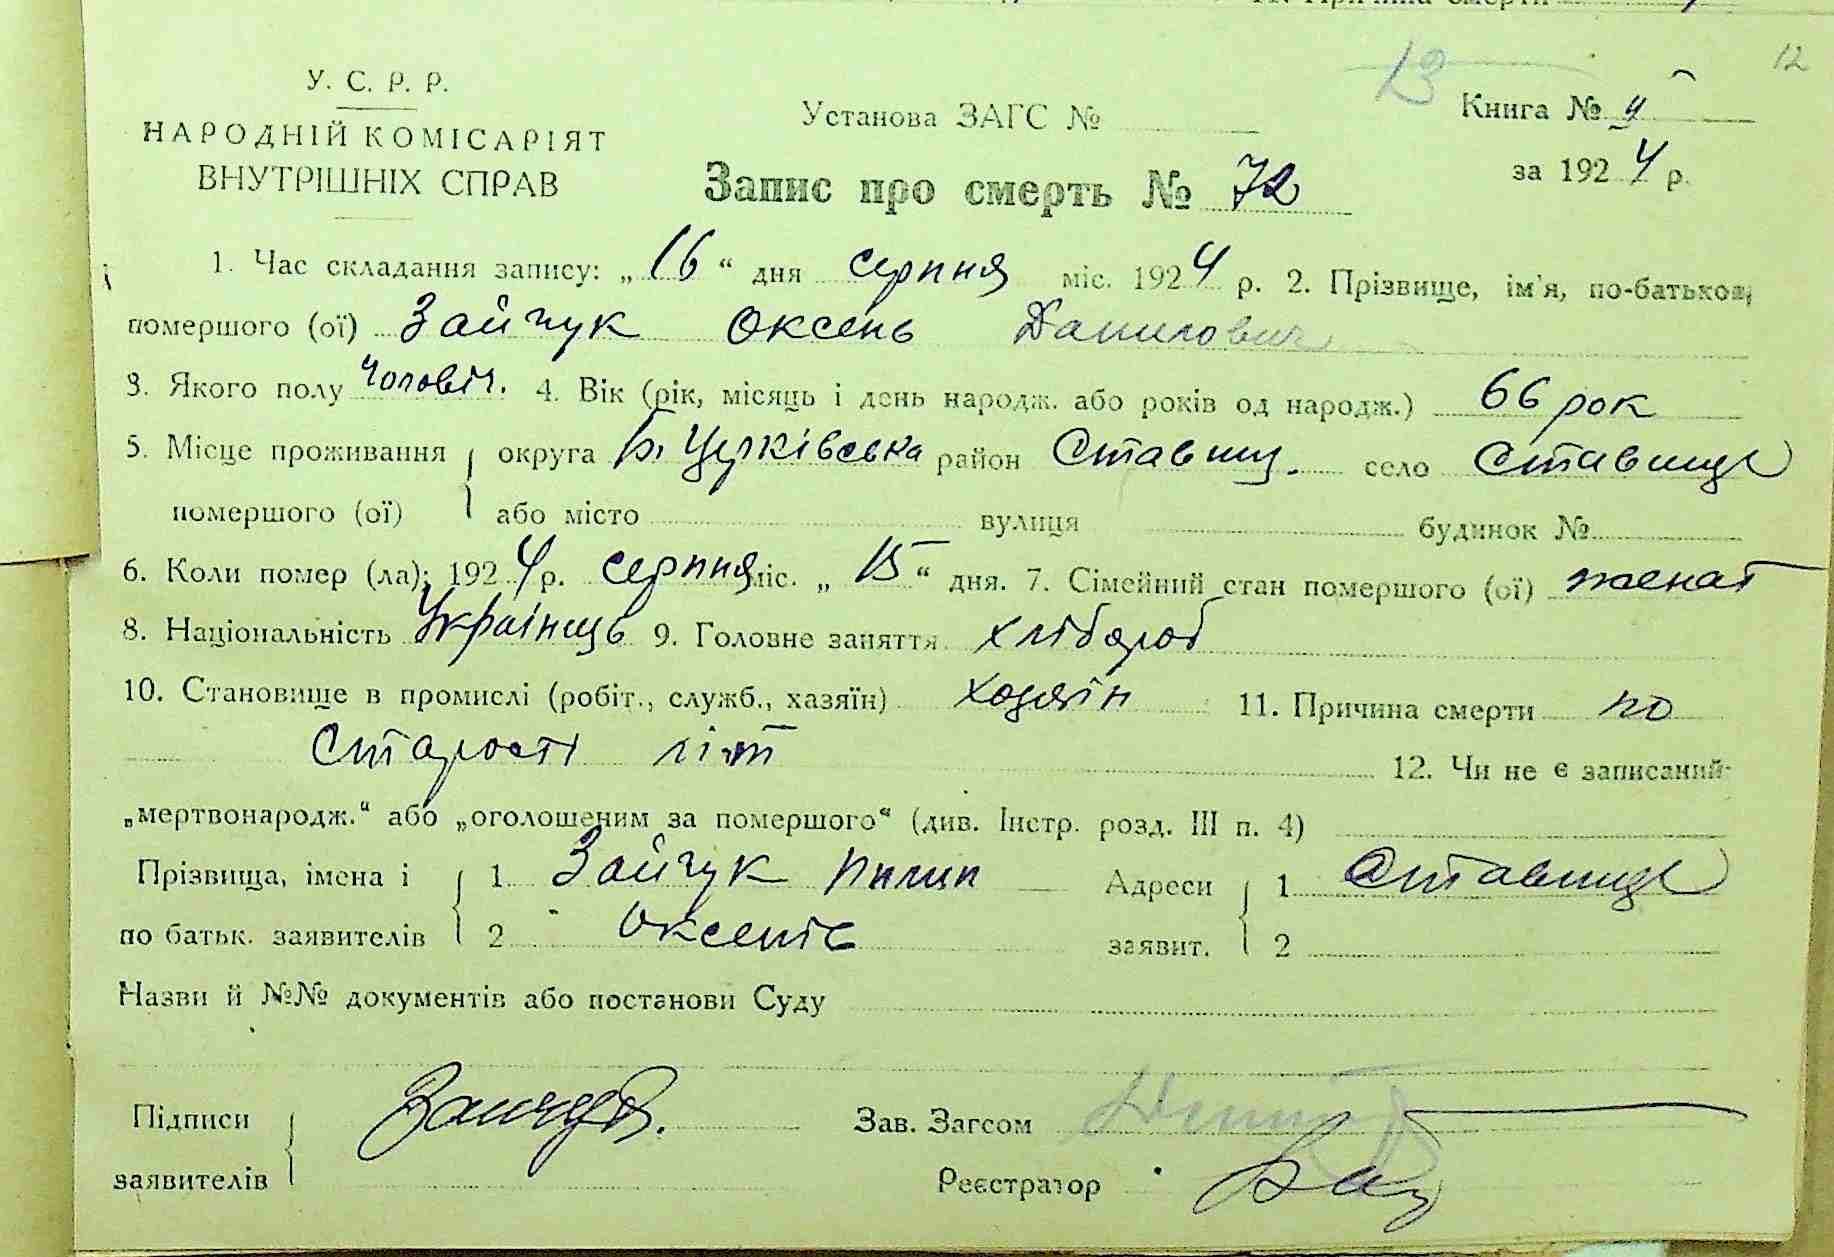 12
У. С. Р. Р.
НАРОДНІЙ КОМІСАРІЯТ
ВНУТРІШНІХ СПРАВ
Установа ЗАГС №
13
Книга №
за 1924 р.
Запис про смерть № 72
1. Час складання запису: „16“ дня серпня міс. 1924 р. 2. Прізвище, ім'я, по-батькові
помершого (ої) Зайчук Оксень Данилович
3. Якого полу чоловіч. 4. Вік (рік, місяць і день народж. або років од народж.) 66 рок
5. Місце проживання округа Б. Церківська район Ставищ. село Ставище
помершого (ої) або місто вулиця будинок №
6. Коли помер (ла): 1924 р. серпня міс. „15“ дня. 7. Сімейний стан помершого (ої) женат
8. Національність Українець 9. Головне заняття хлібороб
10. Становище в промислі (робіт., служб., хазяїн) хозяін 11. Причина смерти по
старості літ 12. Чи не є записаний
„мертвонародж.“ або „оголошеним за помершого“ (див. Інстр. розд. III п. 4)
Прізвища, імена і 1 Зайчук Пилип Адреси 1 Ставище
по батьк. заявителів 2 Оксенів заявит. 2
Назви й №№ документів або постанови Суду
Підписи Зав. Загсом
заявителів Реєстратор